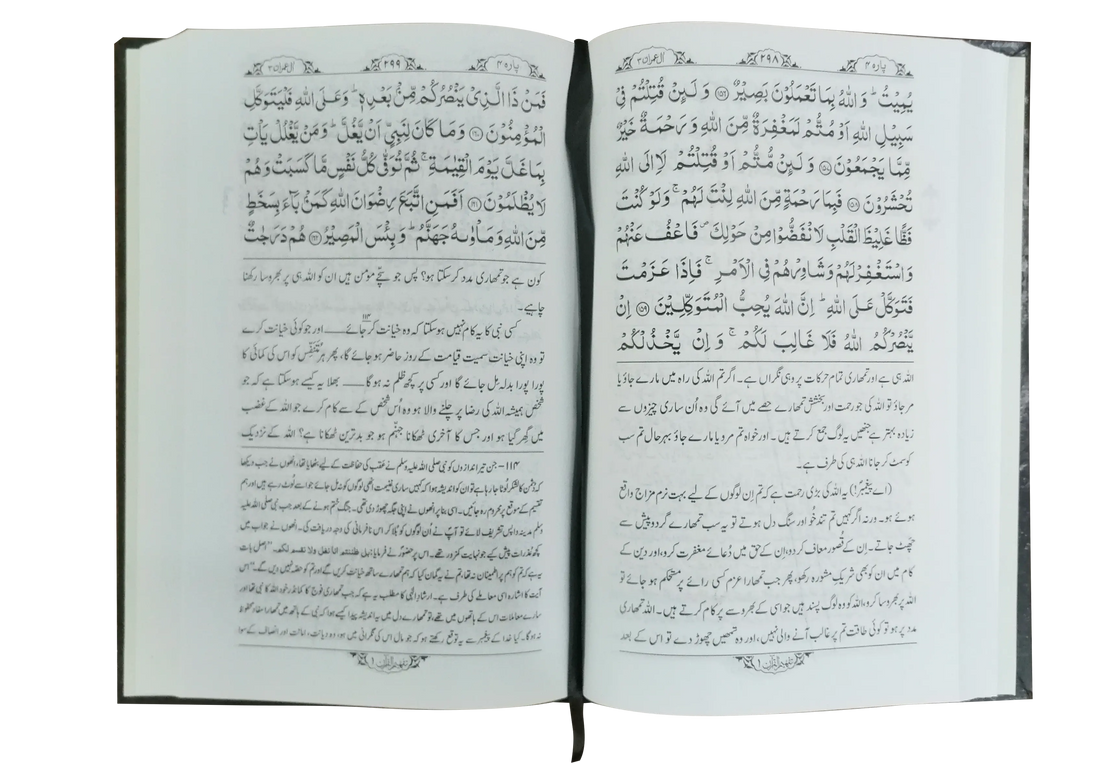 پارہ ۴
۲۹۸
آل عمران ۳
يُمِيْتُ ؕ وَ اللّٰهُ بِمَا تَعْمَلُوْنَ بَصِيْرٌ ﴿۱۵۶﴾ وَ لَئِنْ قُتِلْتُمْ فِىْ
سَبِيْلِ اللّٰهِ اَوْ مُتُّمْ لَمَغْفِرَةٌ مِّنَ اللّٰهِ وَ رَحْمَةٌ خَيْرٌ
مِّمَّا يَجْمَعُوْنَ ﴿۱۵۷﴾ وَ لَئِنْ مُّتُّمْ اَوْ قُتِلْتُمْ لَاِالَى اللّٰهِ
تُحْشَرُوْنَ ﴿۱۵۸﴾ فَبِمَا رَحْمَةٍ مِّنَ اللّٰهِ لِنْتَ لَهُمْ ۚ وَ لَوْ كُنْتَ
فَظًّا غَلِيْظَ الْقَلْبِ لَانْفَضُّوْا مِنْ حَوْلِكَ ۪ فَاعْفُ عَنْهُمْ
وَاسْتَغْفِرْ لَهُمْ وَ شَاوِرْهُمْ فِى الْاَمْرِ ۚ فَاِذَا عَزَمْتَ
فَتَوَكَّلْ عَلَى اللّٰهِ ؕ اِنَّ اللّٰهَ يُحِبُّ الْمُتَوَكِّلِيْنَ ﴿۱۵۹﴾ اِنْ
يَّنْصُرْكُمُ اللّٰهُ فَلَا غَالِبَ لَكُمْ ۚ وَ اِنْ يَّخْذُلْكُمْ
اللہ ہی ہے اور تمھاری تمام حرکات پر وہی نگراں ہے۔ اگر تم اللہ کی راہ میں مارے جاؤ یا
مر جاؤ تو اللہ کی جو رحمت اور بخشش تمھارے حصے میں آئے گی وہ اُن ساری چیزوں سے
زیادہ بہتر ہے جنھیں یہ لوگ جمع کرتے ہیں۔ اور خواہ تم مرو یا مارے جاؤ بہرحال تم سب
کو سمٹ کر جانا اللہ ہی کی طرف ہے۔
(اے پیغمبرؐ!) یہ اللہ کی بڑی رحمت ہے کہ تم اِن لوگوں کے لیے بہت نرم مزاج واقع
ہوئے ہو۔ ورنہ اگر کہیں تم تند خُو اور سنگ دل ہوتے تو یہ سب تمھارے گردو پیش سے
چھٹ جاتے۔ اِن کے قصور معاف کر دو، اِن کے حق میں دُعائے مغفرت کرو، اور دین کے
کام میں ان کو بھی شریکِ مشورہ رکھو، پھر جب تمھارا عزم کسی رائے پر مستحکم ہو جائے تو
اللہ پر بھروسا کرو، اللہ کو وہ لوگ پسند ہیں جو اسی کے بھروسے پر کام کرتے ہیں۔ اللہ تمھاری
مدد پر ہو تو کوئی طاقت تم پر غالب آنے والی نہیں، اور وہ تمھیں چھوڑ دے تو اس کے بعد
تفہیم القرآن ۱
پارہ ۴
۲۹۹
آل عمران ۳
فَمَنْ ذَا الَّذِىْ يَنْصُرُكُمْ مِّنْۢ بَعْدِهٖ ؕ وَ عَلَى اللّٰهِ فَلْيَتَوَكَّلِ
الْمُؤْمِنُوْنَ ﴿۱۶۰﴾ وَ مَا كَانَ لِنَبِىٍّ اَنْ يَّغُلَّ ؕ وَ مَنْ يَّغْلُلْ يَاْتِ
بِمَا غَلَّ يَوْمَ الْقِيٰمَةِ ۚ ثُمَّ تُوَفّٰى كُلُّ نَفْسٍ مَّا كَسَبَتْ وَ هُمْ
لَا يُظْلَمُوْنَ ﴿۱۶۱﴾ اَفَمَنِ اتَّبَعَ رِضْوَانَ اللّٰهِ كَمَنْۢ بَآءَ بِسَخَطٍ
مِّنَ اللّٰهِ وَ مَاْوٰىهُ جَهَنَّمُ ؕ وَ بِئْسَ الْمَصِيْرُ ﴿۱۶۲﴾ هُمْ دَرَجٰتٌ
کون ہے جو تمھاری مدد کر سکتا ہو؟ پس جو سچے مومن ہیں ان کو اللہ ہی پر بھروسا رکھنا
چاہیے۔
کسی نبی کا یہ کام نہیں ہو سکتا کہ وہ خیانت کر جائے ۱۱۴ــــ اور جو کوئی خیانت کرے
تو وہ اپنی خیانت سمیت قیامت کے روز حاضر ہو جائے گا، پھر ہر مُتنفِّس کو اس کی کمائی کا
پورا پورا بدلہ مل جائے گا اور کسی پر کچھ ظلم نہ ہو گا ــــ بھلا یہ کیسے ہو سکتا ہے کہ جو
شخص ہمیشہ اللہ کی رضا پر چلنے والا ہو وہ اُس شخص کے سے کام کرے جو اللہ کے غضب
میں گھِر گیا ہو اور جس کا آخری ٹھکانا جہنّم ہو جو بدترین ٹھکانا ہے؟ اللہ کے نزدیک
۱۱۴ - جن تیر اندازوں کو نبی صلی اللہ علیہ وسلم نے عقب کی حفاظت کے لیے بٹھایا تھا، اُنھوں نے جب دیکھا
کہ دشمن کا لشکر لُوٹا جا رہا ہے تو ان کو اندیشہ ہوا کہ کہیں ساری غنیمت اُنھی لوگوں کو نہ مل جائے جو اسے لوٹ رہے ہیں اور ہم
تقسیم کے موقع پر محروم رہ جائیں۔ اسی بنا پر اُنھوں نے اپنی جگہ چھوڑ دی تھی۔ جنگ ختم ہونے کے بعد جب نبی صلی اللہ علیہ
وسلم مدینہ واپس تشریف لائے تو آپؐ نے اُن لوگوں کو بُلا کر اس نافرمانی کی وجہ دریافت کی۔ اُنھوں نے جواب میں
کچھ عذرات پیش کیے جو نہایت کمزور تھے۔ اس پر حضورؐ نے فرمایا: بل ظننتم انا نغل ولا نقسم لکم۔ ”اصل بات
یہ ہے کہ تم کو ہم پر اطمینان نہ تھا، تم نے یہ گمان کیا کہ ہم تمھارے ساتھ خیانت کریں گے اور تم کو حصّہ نہیں دیں گے۔“ اس
آیت کا اشارہ اسی معاملے کی طرف ہے۔ ارشادِ الٰہی کا مطلب یہ ہے کہ جب تمھاری فوج کا کمانڈر خود اللہ کا نبی تھا اور
سارے معاملات اس کے ہاتھ میں تھے، تو تمھارے دل میں یہ اندیشہ پیدا کیسے ہوا کہ نبی کے ہاتھ میں تمھارا مفاد محفوظ
نہ ہوگا۔ کیا خدا کے پیغمبر سے یہ توقع رکھتے ہو کہ جو مال اس کی نگرانی میں ہو وہ دیانت، امانت اور انصاف کے سوا
تفہیم القرآن ۱